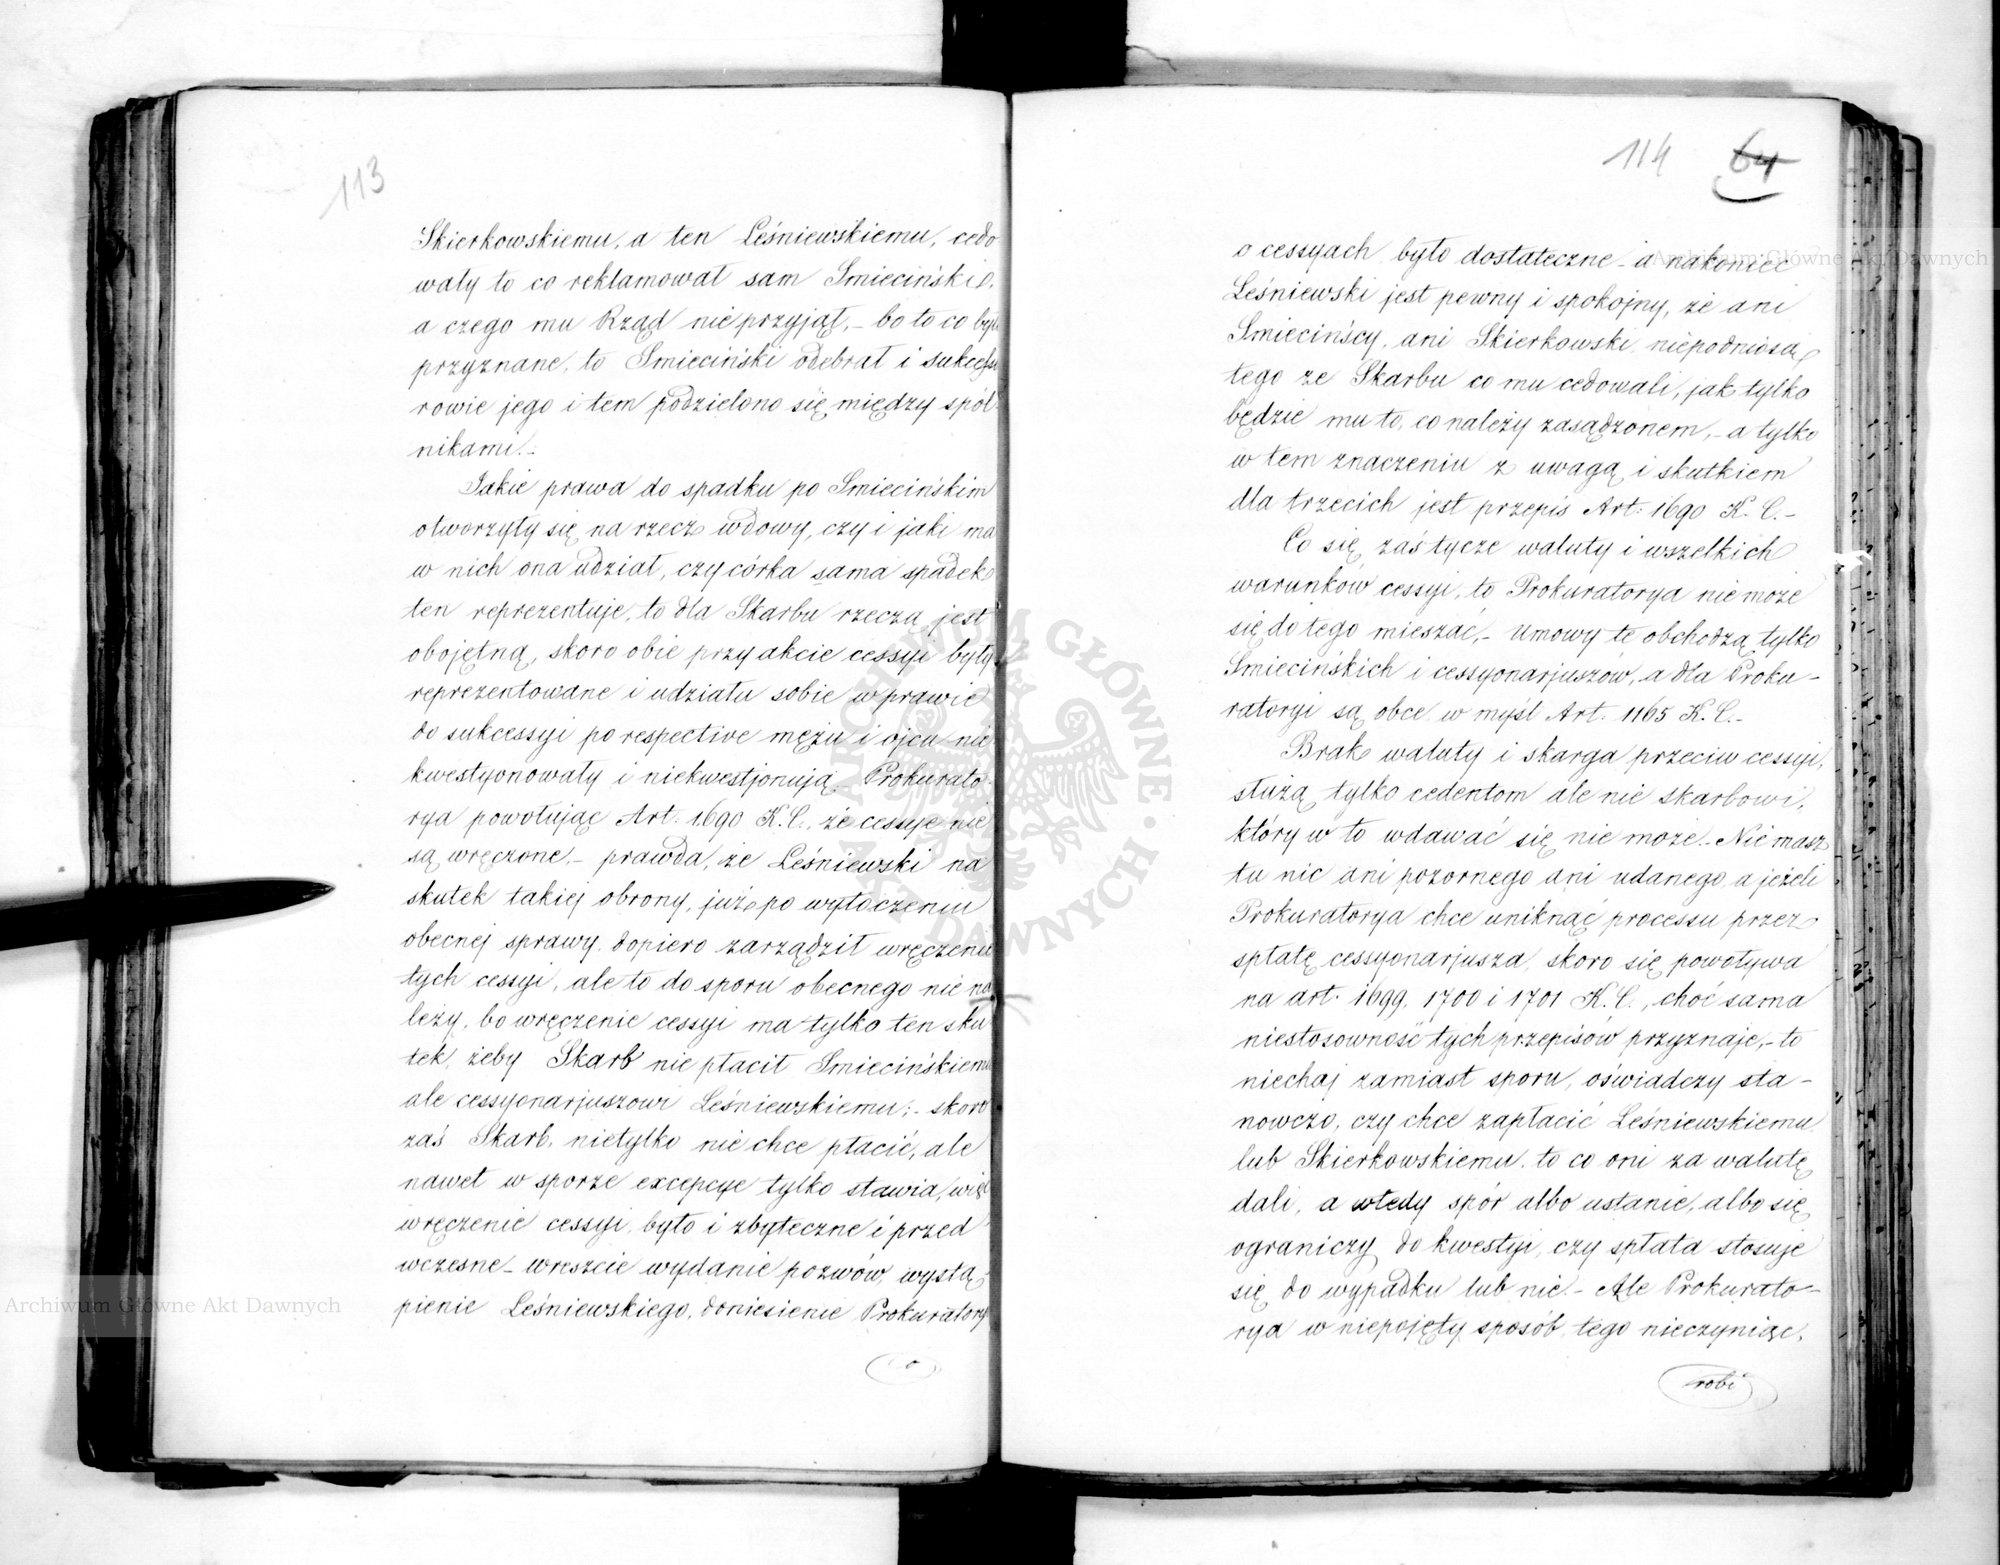 113
Skierkowskiemu, a ten Leśniewskiemu, cedo
wały to co reklamował sam Smieciński,
a czego mu Rząd nie przyjął,– bo to co było
przyznane, to Smieciński odebrał i sukcesso
rowie jego i tem podzielono się między spól-
nikami.–
Jakie prawa do spadku po Smiecińskim
otworzyły się na rzecz wdowy, czy i jaki ma
w nich ona udział, czy córka sama spadek
ten reprezentuje, to dla Skarbu rzeczą jest
obojętną, skoro obie przy akcie cessyi były
reprezentowane i udziału sobie w prawie
do sukcessyi po respective mężu i ojcu nie
kwestyonowały i niekwestjonują.– Prokurato-
rya powołując Art. 1690 K.C., że cessye nie
są wręczone,– prawda, że Leśniewski na
skutek takiej obrony, już po wytoczeniu
obecnej sprawy, dopiero zarządził wręczenie
tych cessyi, ale to do sporu obecnego nie na
leży, bo wręczenie cessyi ma tylko ten sku
tek, żeby Skarb nie płacił Smiecińskiemu
ale cessyonarjuszowi Leśniewskiemu;– skoro
zaś Skarb, nietylko nie chce płacić, ale
nawet w sporze excepcye tylko stawia, więc
wręczenie cessyi, było i zbyteczne i przed
wczesne– wreszcie wydanie pozwów, wystą-
pienie Leśniewskiego, doniesienie Prokuratoryi
o
114 64
o cessyach było dostateczne– a nakoniec
Leśniewski jest pewny i spokojny, że ani
Smiecińscy, ani Skierkowski, niepodniosą
tego ze Skarbu co mu cedowali, jak tylko
będzie mu to, co należy zasądzonem,– a tylko
w tem znaczeniu z uwagą i skutkiem
dla trzecich jest przepis Art. 1690 K. C.–
Co się zaś tycze waluty i wszelkich
warunków cessyi, to Prokuratorya nie może
się do tego mieszać,– umowy te obchodzą tylko
Smiecińskich i cessyonarjuszów, a dla Proku–
ratoryi są obce, w myśl Art. 1165 K. C.–
Brak waluty i skarga przeciw cessyi,
służą tylko cedentom ale nie skarbowi,
który w to wdawać się nie może.– Nie masz
tu nic ani pozornego ani udanego, a jeżeli
Prokuratorya chce uniknąć processu przez
spłatę cessyonarjusza, skoro się powoływa
na art. 1699, 1700 i 1701 K. C., choć sama
niestosowność tych przepisów przyznaje,– to
niechaj zamiast sporu, oświadczy sta–
nowczo, czy chce zapłacić Leśniewskiemu
lub Skierkowskiemu, to co oni za walutę
dali, a wtedy spór albo ustanie, albo się
ograniczy do kwestyi, czy spłata stosuje
się do wypadku lub nie.– Ale Prokurato–
rya w niepojęty sposób, tego nieczyniąc,
robi
ARCHIWUM GŁÓWNE AKT DAWNYCH
Archiwum Główne Akt Dawnych
Archiwum Główne Akt Dawnych